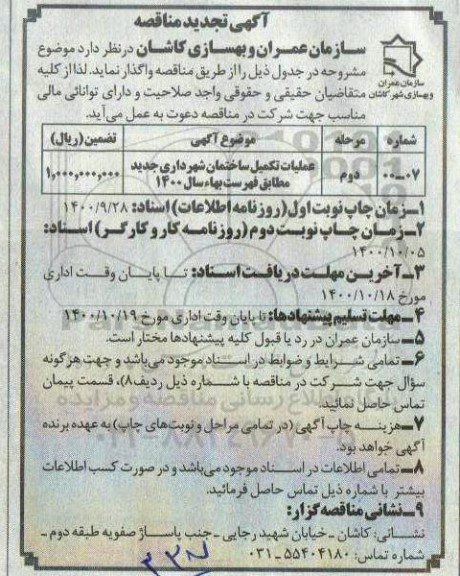 آگهی تجدید مناقصه
سازمان عمران و بهسازی کاشان درنظر دارد موضوع
مشروحه در جدول ذیل را از طریق مناقصه واگذار نماید. لذا از کلیه
متقاضیان حقیقی و حقوقی واجد صلاحیت و دارای توانائی مالی
مناسب جهت شرکت در مناقصه دعوت به عمل می‌آید.
سازمان عمران
وبهسازی شهر کاشان
شماره مرحله موضوع آگهی تضمین(ریال)
۰۰-۰۷ دوم عملیات تکمیل ساختمان شهرداری جدید ۱,۰۰۰,۰۰۰,۰۰۰
مطابق فهرست بهاء سال ۱۴۰۰
۱-زمان چاپ نوبت اول(روزنامه اطلاعات) اسناد: ۱۴۰۰/۹/۲۸
۲-زمان چاپ نوبت دوم (روزنامه کار و کارگر) اسناد:
۱۴۰۰/۱۰/۰۵
۳-آخرین مهلت دریافت اسناد: تا پایان وقت اداری
مورخ ۱۴۰۰/۱۰/۱۸
۴-مهلت تسلیم پیشنهادها: تا پایان وقت اداری مورخ ۱۴۰۰/۱۰/۱۹
۵-سازمان عمران در رد یا قبول کلیه پیشنهادها مختار است.
۶-تمامی شرایط و ضوابط در اسناد موجود می‌باشد و جهت هرگونه
سؤال جهت شرکت در مناقصه با شماره ذیل ردیف ۸)، قسمت پیمان
تماس حاصل نمائید.
۷-هزینه چاپ آگهی (در تمامی مراحل و نوبت‌های چاپ) به عهده برنده
آگهی خواهد بود.
۸-تمامی اطلاعات در اسناد موجود می‌باشد و در صورت کسب اطلاعات
بیشتر با شماره ذیل تماس حاصل فرمائید.
۹-نشانی مناقصه‌گزار:
نشانی: کاشان - خیابان شهید رجایی - جنب پاساژ صفویه طبقه دوم -
شماره تماس: ۵۵۴۰۴۱۸۰-۰۳۱